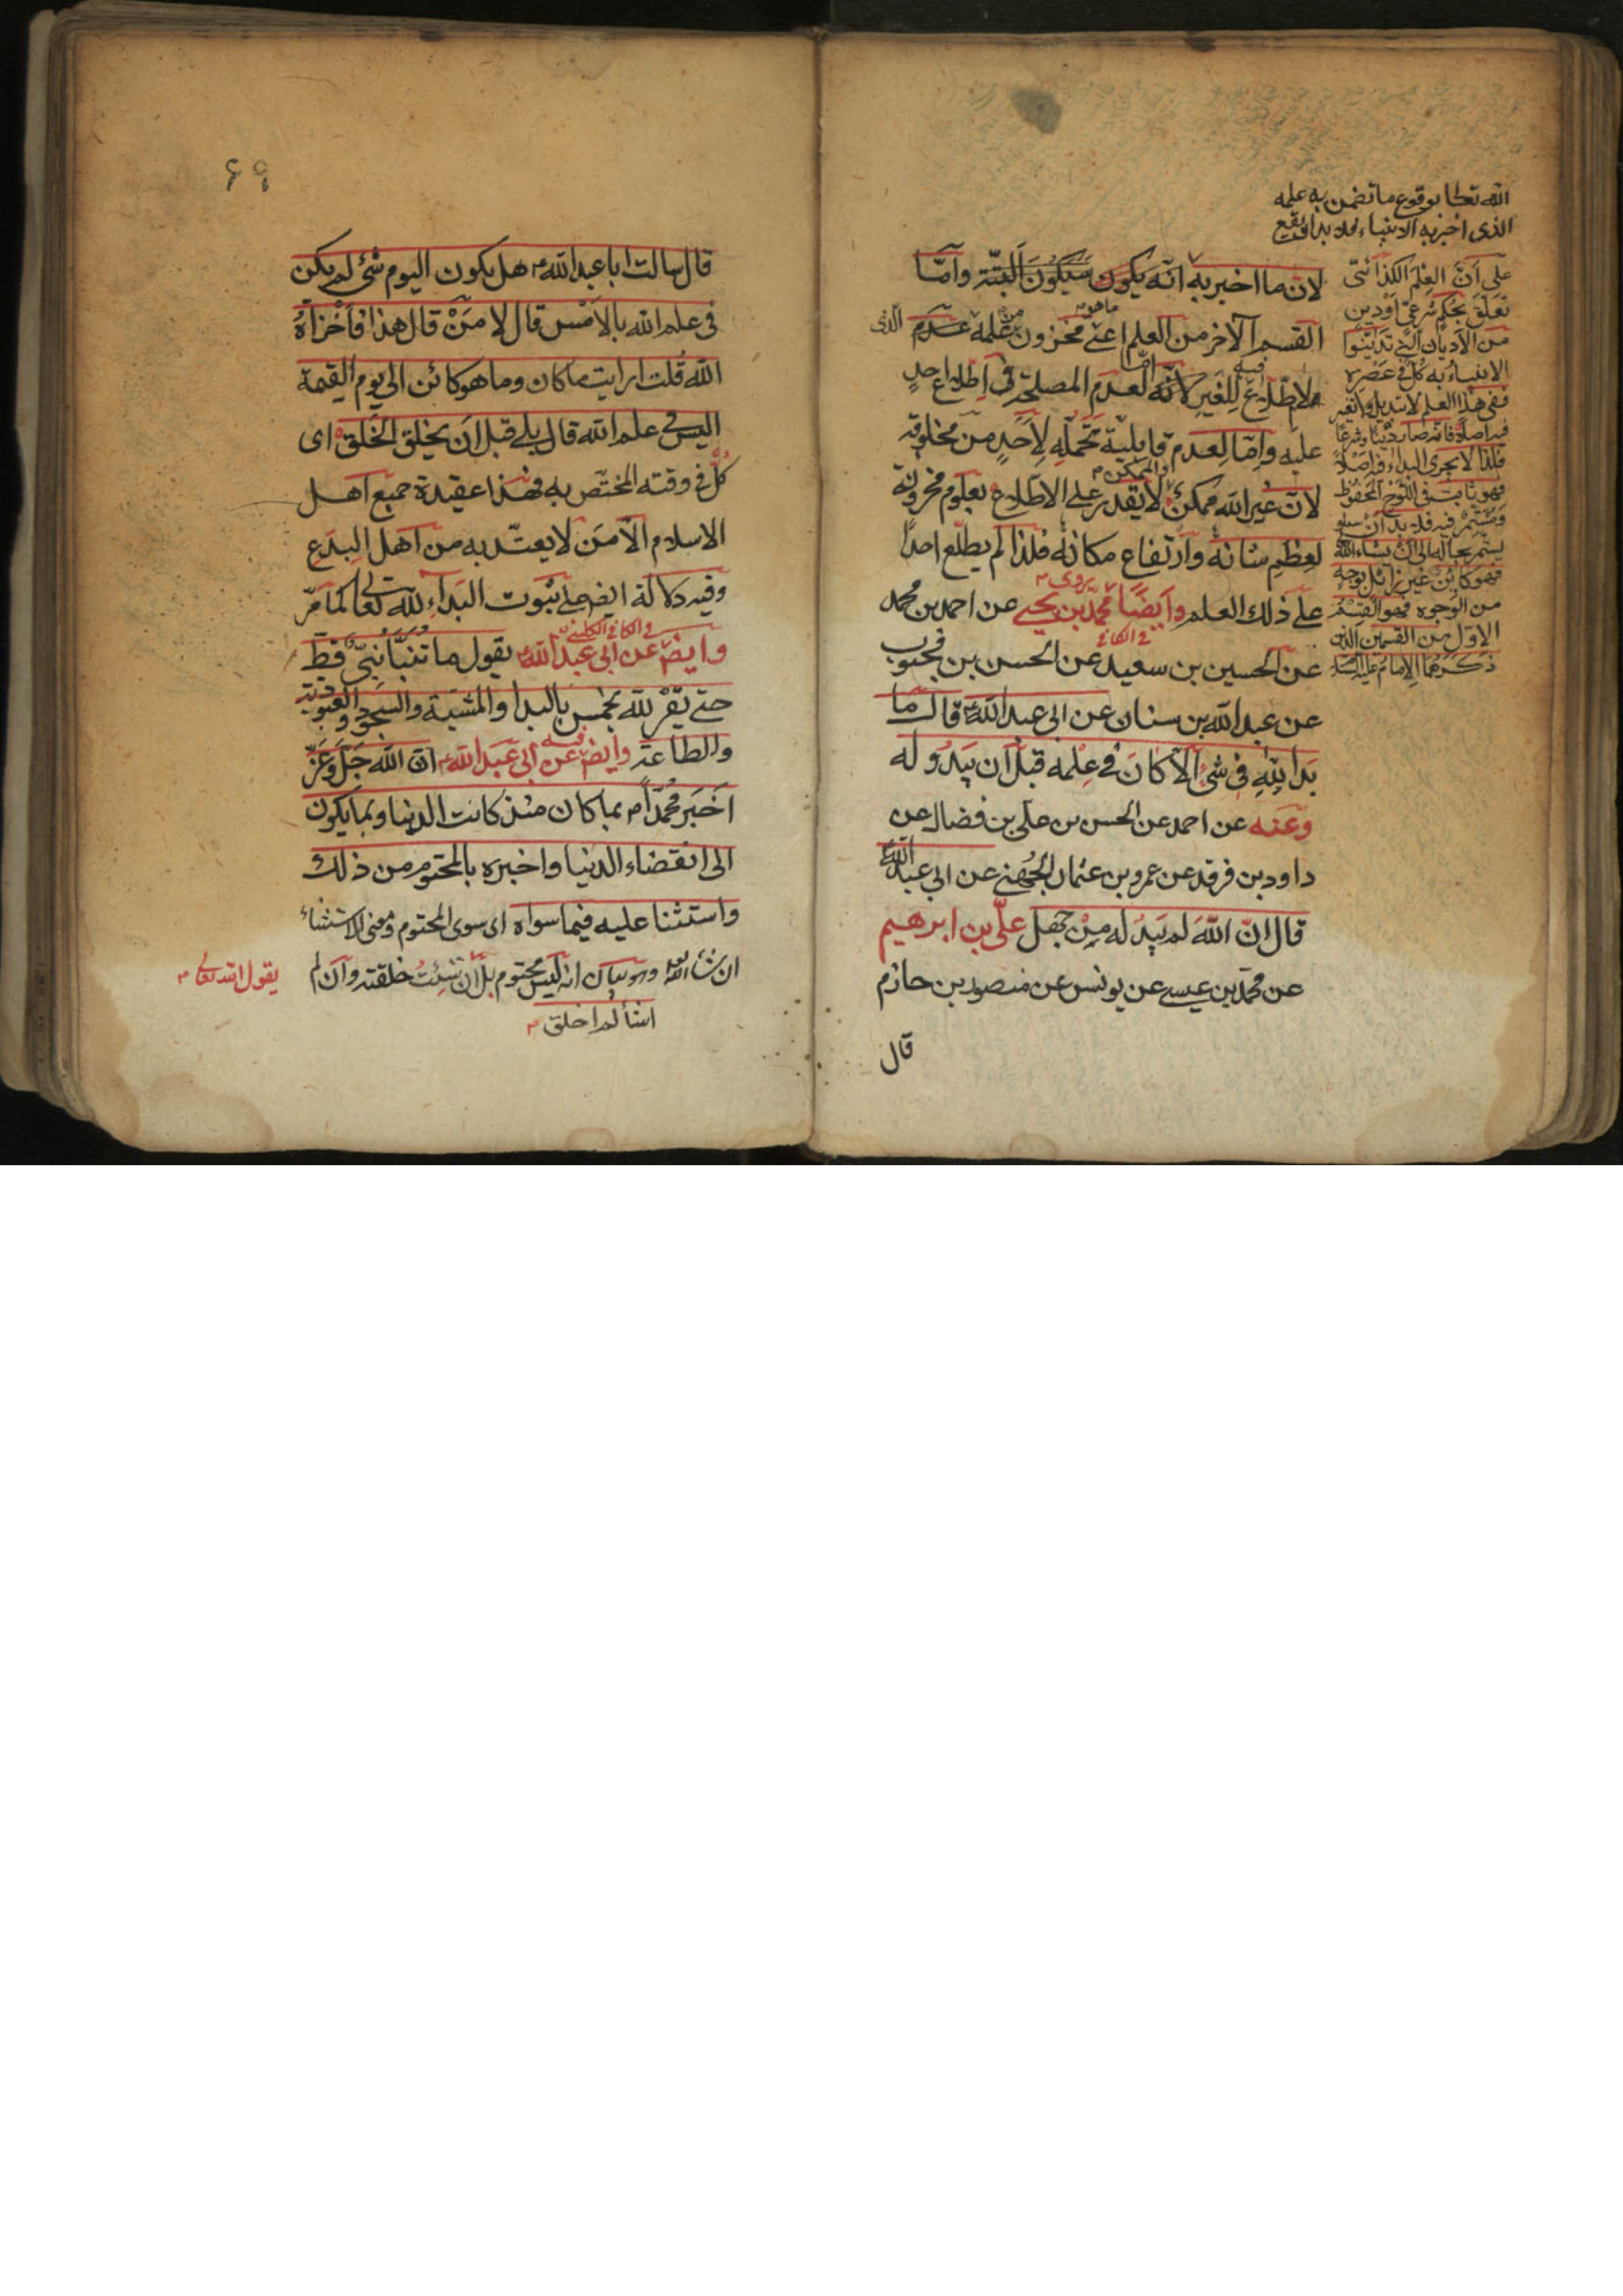 الله تعالى بوقوع ما تضمن به علمه
الذى اخبر به الانبياء فلا بد ان يقع
على أنّ العلم الكذائى
تعلّق بحكم شرعىّ او دين
من الأديان التى تديّنوا
الانبياء به كل فى عصره
ففى هذا العلم لا تبديل ولا تغير
فيه اصلا فانه صار دينا وشرعا
فلذا لا يجرى البداء فيه اصلا
فهو ثابت فى اللوح المحفوظ
ومستمر فيه فلا بد ان
يستمر بحاله الى ان يشاء الله
فهو كائن غير زائل بوجه
من الوجوه فهو القسم
الاوّل من القسمين الذين
ذكرهما الامام عليه السلام
لانّ ما اخبر به انّه يكون سيكون البتّة وامّا
القسم الآخر من العلم اعنى ما هو مخزون من علمه عدم الذى
لا اطلاع للغير فيه لانّه امّا لعدم المصلحة فى اطلاع احد
عليه وامّا لعدم قابلية تحمّله لأحد من مخلوقه
لانّ غير الله ممكن والممكن لا يقدر على الاطلاع بعلوم مخزونة
لعظم شانه وارتفاع مكانه فلذا لم يطلع احدًا
على ذلك العلم وايضًا يروى محمّد بن يحيى فى الكافى عن احمد بن محمد
عن الحسين بن سعيد عن الحسن بن محبوب
عن عبد الله بن سنان عن ابى عبد الله قال ما
بدا للهِ فى شئ الّا كانَ فى علمه قبل ان يبدو له
وعنه عن احمد عن الحسن بن على بن فضال عن
داود بن فرقد عن عمرو بن عثمان الجُهنى عن ابى عبد الله
قال انّ اللهَ لم يبدُ له مِنْ جهل علىّ بن ابرهيم
عن محمّد بن عيسى عن يونس عن منصور بن حازم
قال
۶۹
قال سالت ابا عبد الله هل يكون اليوم شئ لم يكن
فى علم الله بالأمس قال لا مَنْ قال هذا فأخزاهُ
الله قلت ارايت ما كان وما هو كائن الى يوم القيمة
اليس فى علم الله قال بلى قبل ان يخلق الخلق اى
كلٌّ فى وقته المختصّ به فهذا عقيدة جميع اهل
الاسلام الّا مَن لا يعتدّ به من اهل البدع
وفيه دلالة ايضا على ثبوت البداءِ لله تعالى كما مرّ
وايضا فى الكافى الكلينى عن ابى عبد الله يقول ما تنبّأ نبىّ قطّ
حتى يقرّ لله بخمس بالبدا والمشيّة والسجود والعبودية
والطاعة وايضا فيه عن ابى عبد الله انّ الله جلّ وعزّ
اخبر محمّدًا بما كان منذ كانت الدنيا وبما يكون
الى انقضاء الدنيا واخبره بالمحتوم من ذلك
واستثنا عليه فيما سواه اى سوى المحتوم ومعنى الاستثناء
ان شاء الله وهو بيان انه ليس محتوم بل ان شئت خلقته وان لم
اشأ لم اخلق
يقول الله تعالى